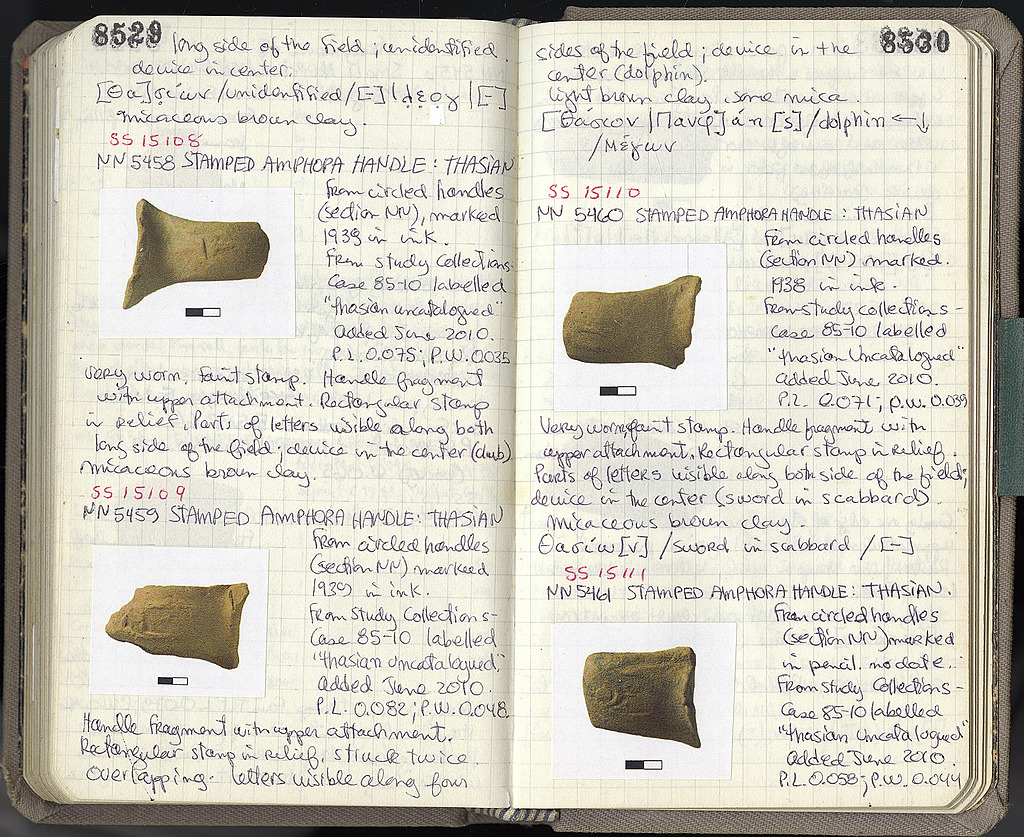 8529
long side of the field; unidentified
device in center.
[Θα]σίων /unidentified/[-]|λεογ|[-]
micaceous brown clay.
SS 15108
NN 5458 STAMPED AMPHORA HANDLE: THASIAN
From circled handles
(section NN), marked
1939 in ink.
From study Collections-
Case 85-10 labelled
"thasian uncatalogued"
added June 2010.
P.L. 0.075; P.W. 0.035
Very worn, faint stamp. Handle fragment
with upper attachment. Rectangular stamp
in relief. Parts of letters visible along both
long side of the field; device in the center (club).
micaceous brown clay.
SS 15109
NN 5459 STAMPED AMPHORA HANDLE: THASIAN
From circled handles
(section NN) marked
1939 in ink.
From Study Collections-
Case 85-10 labelled
"thasian uncatalogued".
added June 2010.
P.L. 0.082; P.W. 0.048.
Handle fragment with upper attachment.
Rectangular stamp in relief, struck twice.
Overlapping. Letters visible along four
8530
sides of the field; device in the
center (dolphin).
light brown clay, some mica.
/dolphin ←↓
/Μέγων
SS 15110
NN 5460 STAMPED AMPHORA HANDLE: THASIAN
From circled handles
(section NN) marked.
1938 in ink.
From study collections-
case 85-10 labelled
"thasian Uncatalogued"
added June 2010.
P.L. 0.071; P.W. 0.039
Very worn, faint stamp. Handle fragment with
upper attachment. Rectangular stamp in relief.
Parts of letters visible along both side of the field;
device in the center (sword in scabbard).
micaceous brown clay.
Θασίω[ν] /sword in scabbard /[-]
SS 15111
NN 5461 STAMPED AMPHORA HANDLE: THASIAN.
From circled handles
(section NN) marked
in pencil. no date.
From Study Collections-
Case 85-10 labelled
"thasian Uncatalogued"
added June 2010.
P.L. 0.058; P.W. 0.044